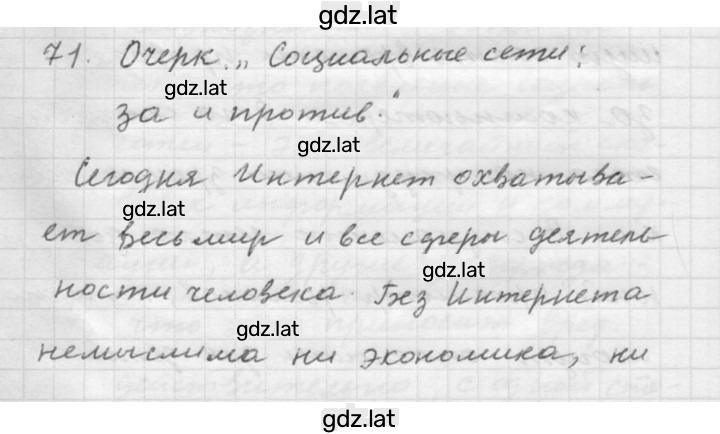 gdz.lat
71. Очерк „Социальные сети:
gdz.lat
за и против."
gdz.lat
Сегодня Интернет охватыва-
gdz.lat
ет весь мир и все сферы деятель
gdz.lat
ности человека. Без Интернета
gdz.lat
немыслима ни экономика, ни
gdz.lat